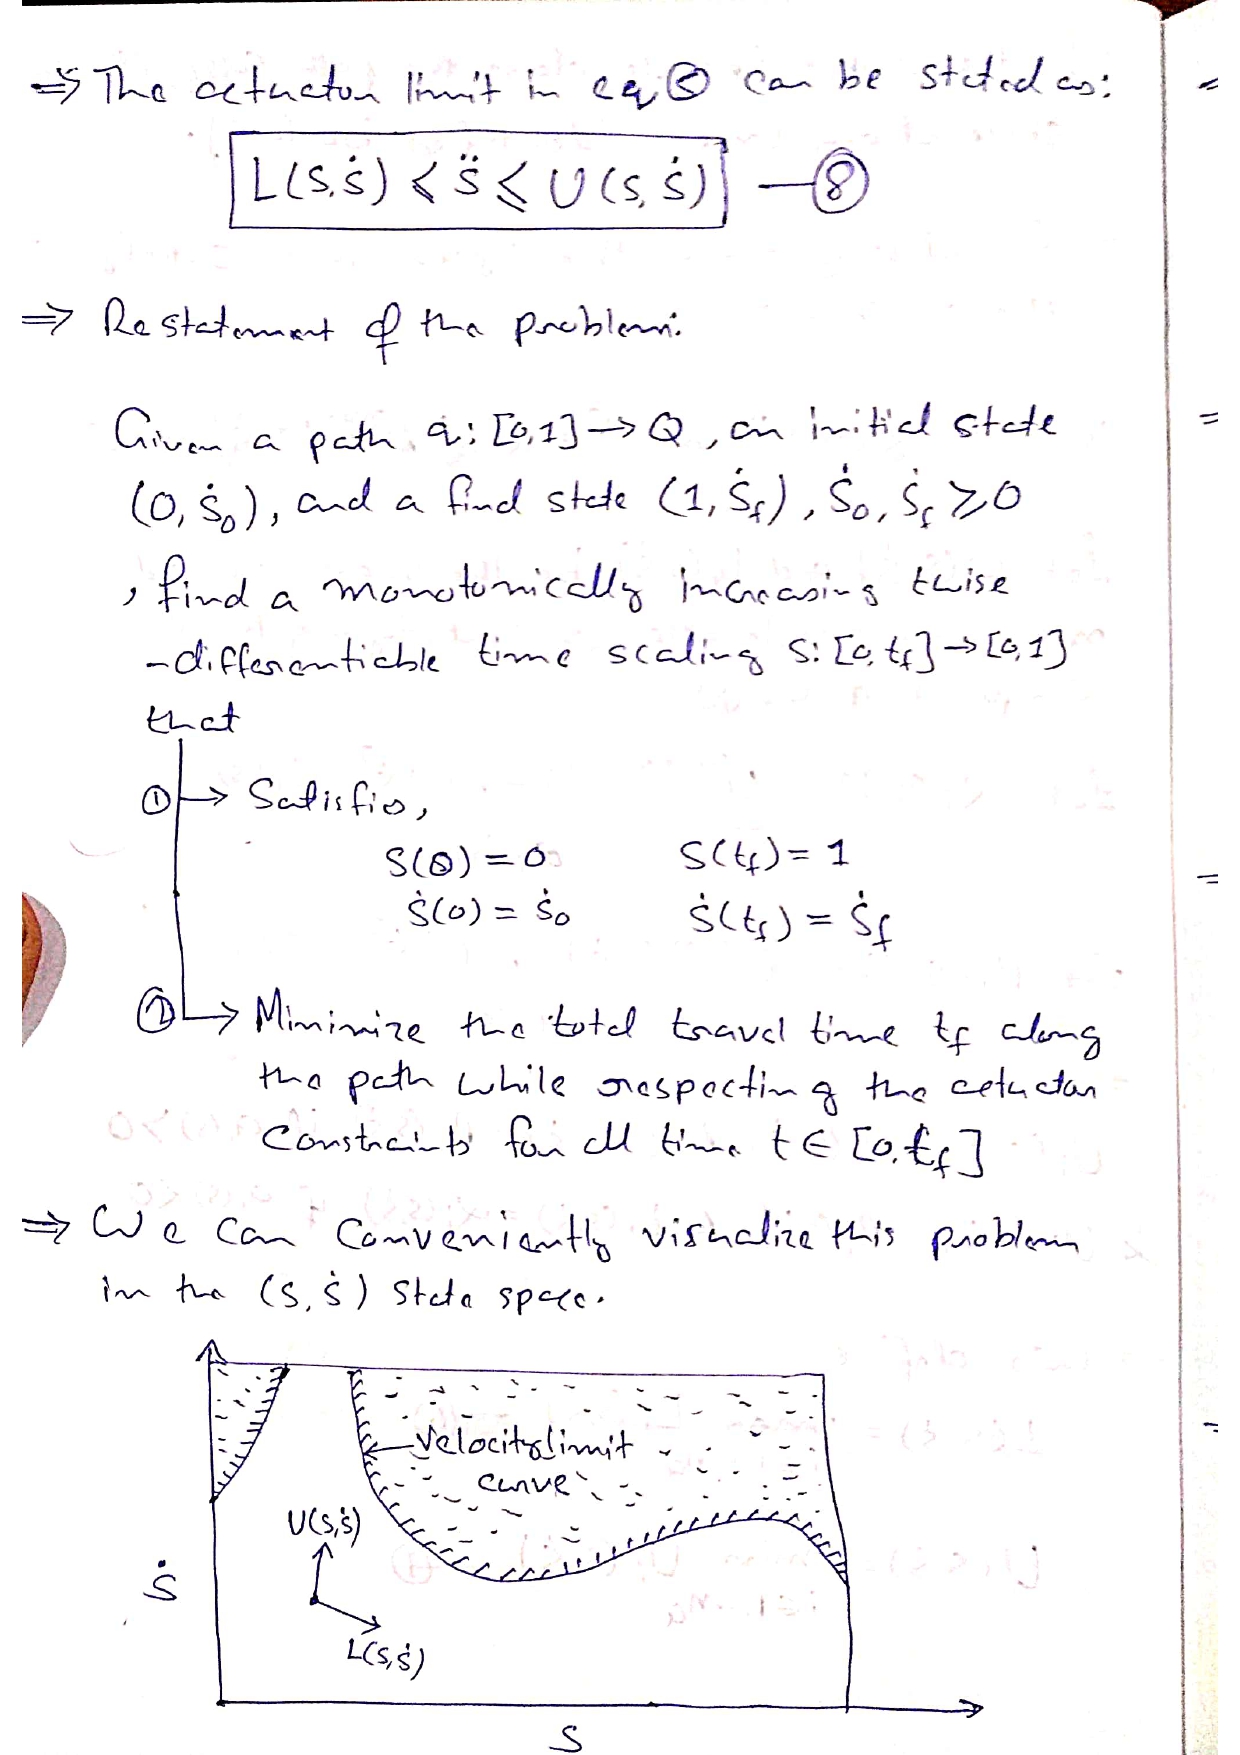 ⇒ The actuator limit in eq ⑥ can be stated as:
L(s,ṡ) ≤ s̈ ≤ U(s,ṡ) —⑧
⇒ Restatement of the problem:
Given a path q: [0,1] → Q, an initial state
(0, ṡ₀), and a final state (1, ṡ_f), ṡ₀, ṡ_f ≥ 0
, find a monotonically increasing twise
-differentiable time scaling s: [0, t_f] → [0,1]
that
① → Satisfies,
s(0) = 0 s(t_f) = 1
ṡ(0) = ṡ₀ ṡ(t_f) = ṡ_f
② → Minimize the total travel time t_f along
the path while respecting the actuator
constraints for all time t ∈ [0, t_f]
⇒ We can conveniently visualize this problem
in the (s, ṡ) state space.
Velocity limit
curve
U(s,ṡ)
ṡ
L(s,ṡ)
s